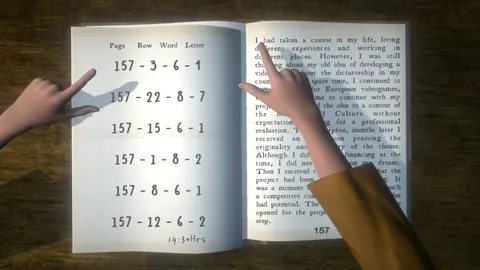 Page Row Word Letter
157 - 3 - 6 - 1
157 - 22 - 8 - 7
157 - 15 - 6 - 1
157 - 1 - 8 - 2
157 - 8 - 6 - 1
157 - 12 - 6 - 2
14:30Hrs
I had taken a course in my life, living
different experiences and working in
different places. However, I was still
thinking about my old idea of developing a
about the dictatorship in my
spare time, I continued to
for European videogames,
to continue with my
the idea to a contest of
the of Culture without
for a professional
evaluation. months later I
received an praising the
originality and of the theme.
Although I did financing at the
time, I did on my dream.
Then I received that the
project had been It
was a moment such
a competitive ideas
had potential. The
opened for the
step.
157